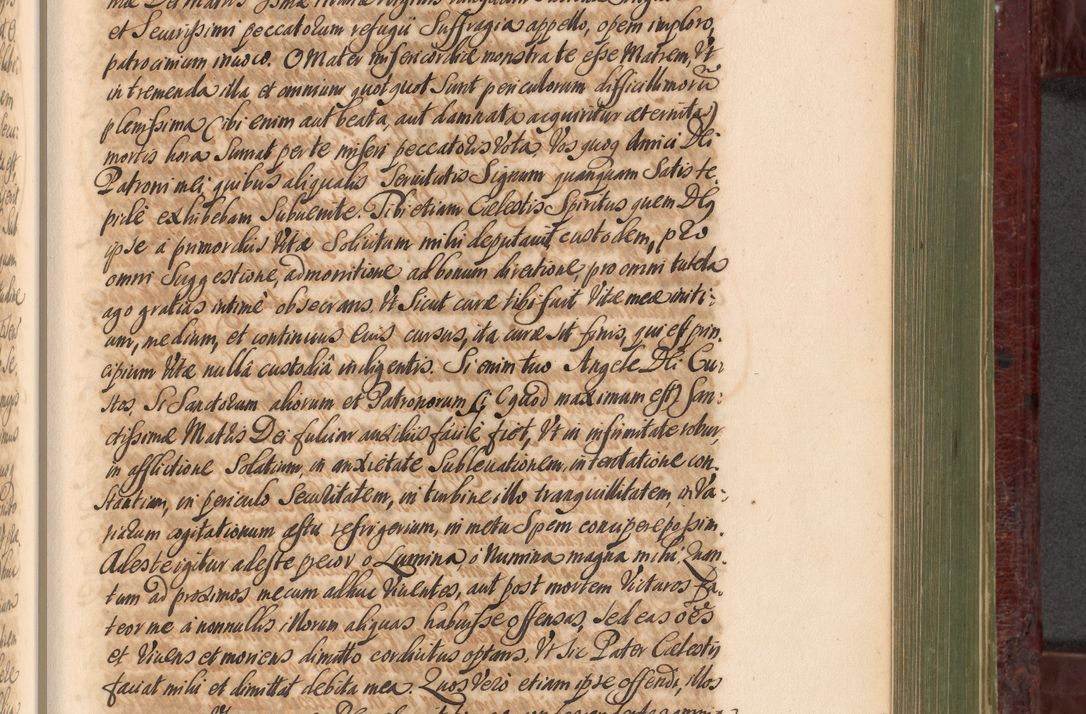 et Securissimi peccatorum refugii Suffragia appello, opem imploro,
patrocinium invoco. O Mater misericordiæ monstra te esse Matrem, Vt
in tremenda illa et omnium quotquot Sunt periculorum difficillimorũ
plenissima (ibi enim aut beata, aut damnata acquiritur æternitas)
mortis hora Sumat per te miseri peccatoris Vota, Vos quoq Amici Dei
Patroni mei, quibus aliqualis Servitutis Signum quanquam Satis te,
pidè exhibebam Subuenite. Tibi etiam Cælestis Spiritus quem Dũs
ipse a primordiis Vitæ Solicitum mihi deputauit custodem, pro
omni Suggestione, admonitione ad bonum directione, pro omni tutela
ago gratias intimè obsecrans Vt Sicut curæ tibi fuit Vitæ meæ initi,
um, medium, et continuus eius cursus, ita curæ sit finis, qui est prin,
cipium Vitæ nulla custodiâ indigentis. Si enim tuo Angele Dei Cus
tos, Si Sanctorum aliorum et Patronorum Si (quod maximum est) San,
ctissimæ Matris Dei fulciar auxiliis facile fiet, Vt in infirmitate robur,
in afflictione Solatium, in anxietate Subleuationem, in tentatione con,
stantiam, in periculo Securitatem, in turbine illo tranquillitatem, in Va,
riarum cogitationum æstu refrigerium, in metu Spem concipere possim.
Adeste igitur adeste precor o Lumina, o Numina magna mihi; Quan,
tum ad proximos mecum adhuc Viuentes, aut post mortem Victuros Fa,
teor me a nonnullis illorum aliquas habuisse offensas, Sed eas oẽs
et Viuens et moriens dimitto corditus optans, Vt Sic Pater Cælestis
faciat mihi et dimittat debita mea. Quos Verò etiam ipse offendi, illos